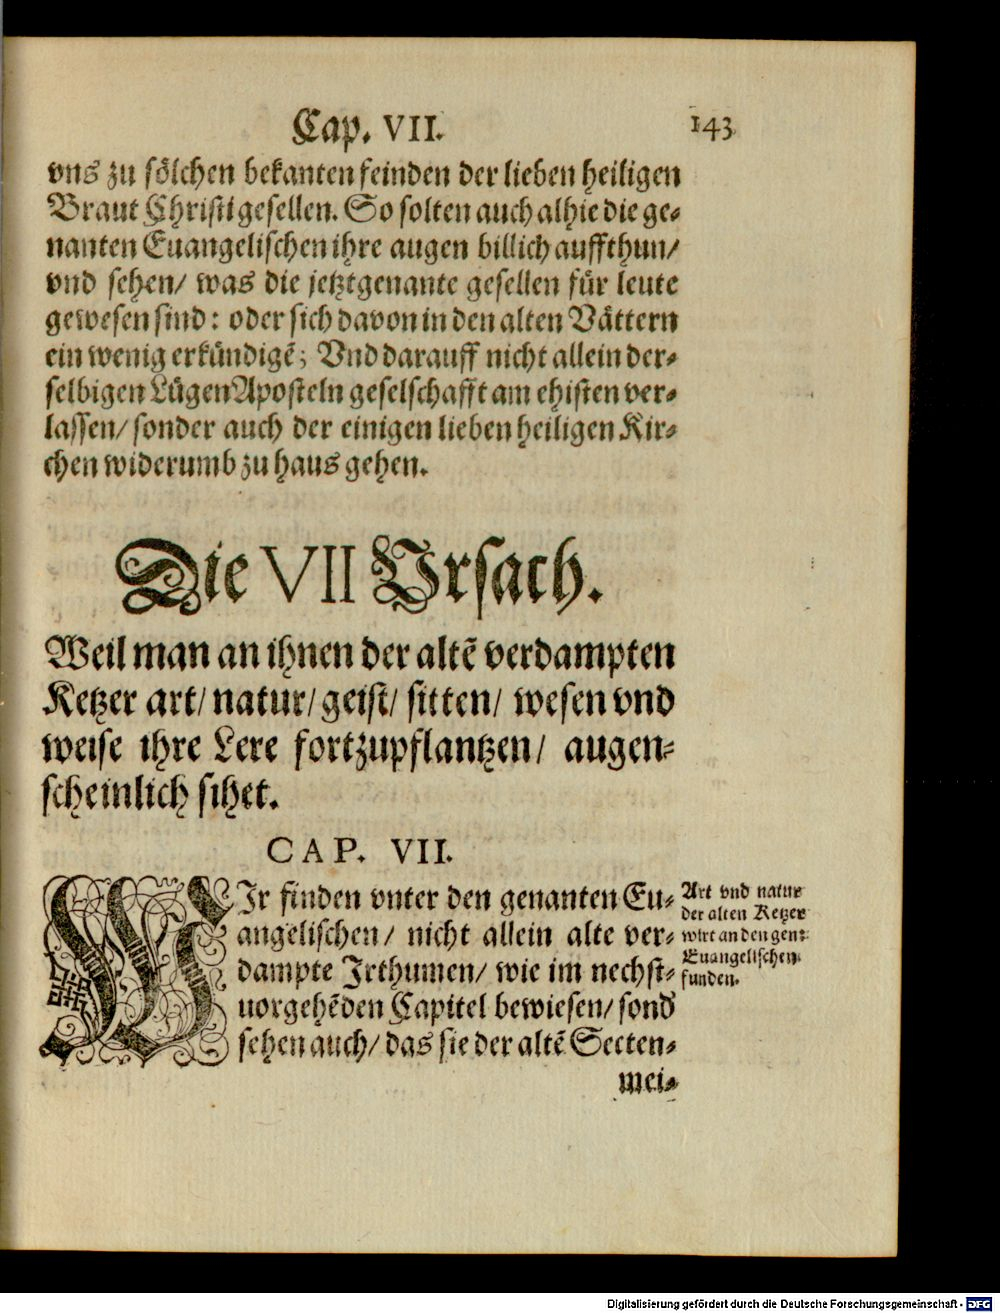 Cap. VII. 143
vns zu sölchen bekanten feinden der lieben heiligen
Braut Christi gesellen. So solten auch alhie die ge-
nanten Euangelischen ihre augen billich auffthun/
vnd sehen/ was die jetztgenante gesellen für leute
gewesen sind: oder sich davon in den alten Vättern
ein wenig erkündigē; Vnd darauff nicht allein der-
selbigen Lügen Aposteln geselschafft am ehisten ver-
lassen/ sonder auch der einigen lieben heiligen Kir-
chen widerumb zu haus gehen.
Die VII Vrsach.
Weil man an ihnen der altē verdampten
Ketzer art/ natur/ geist/ sitten/ wesen vnd
weise ihre Lere fortzupflantzen/ augen-
scheinlich sihet.
CAP. VII.
WIr finden vnter den genanten Eu-
angelischen/ nicht allein alte ver-
dampte Irthumen/ wie im nechst-
uorgehēden Capitel bewiesen/ sond
sehen auch/ das sie der altē Secten-
mei-
Art vnd natur
der alten Ketzer
wirt an den gen:
Euangelischen
funden.
Digitalisierung gefördert durch die Deutsche Forschungsgemeinschaft - DFG